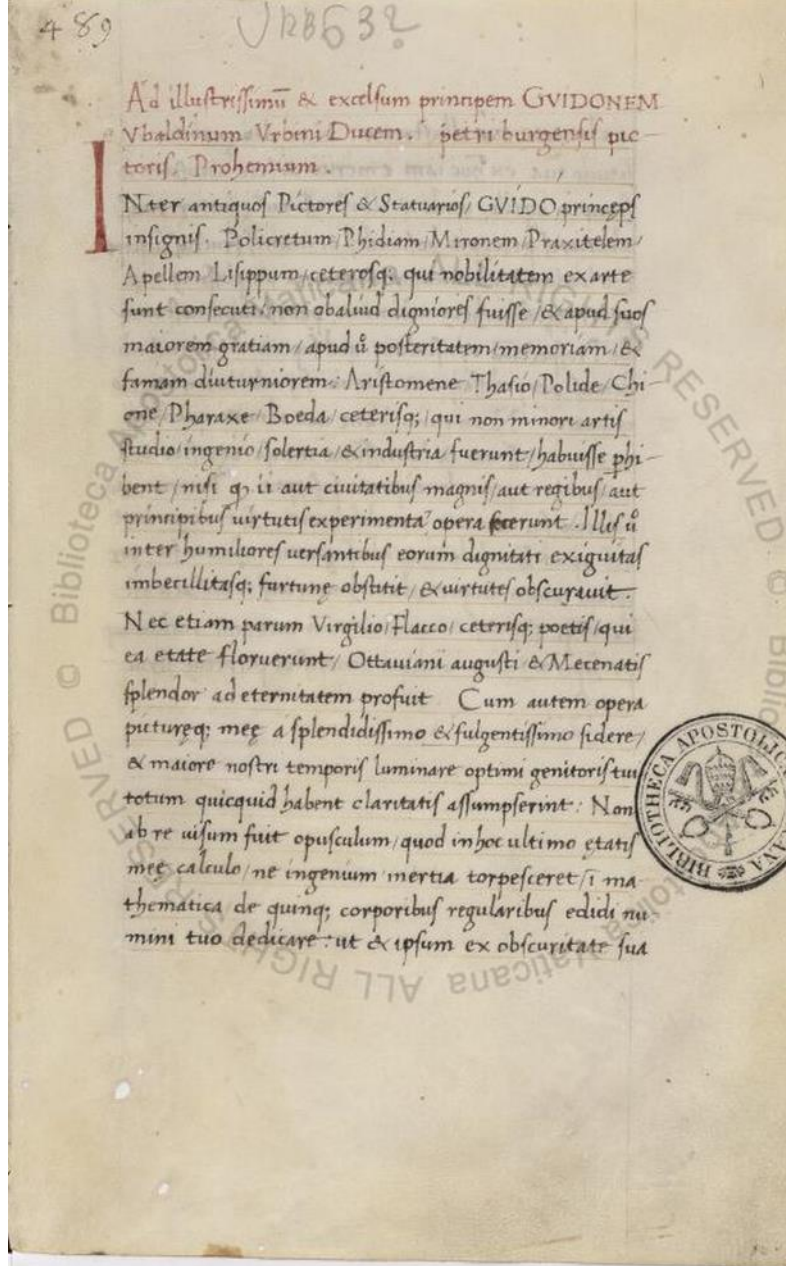 489
VRB 632
Ad illustrissimū & excelsum principem GVIDONEM
Vbaldinum Vrbini Ducem. petri burgensis pic-
toris. Prohemium.
INter antiquos Pictores & Statuarios/ GVIDO princeps
insignis. Policretum/Phidiam/Mironem/Praxitelem/
Apellem Lisippum/ceterosq; qui nobilitatem ex arte
sunt consecuti/non obaliud digniores fuisse/&apud suos
maiorem gratiam/apud ů posteritatem/memoriam/&
famam diuturniorem: Aristomene Thasio/Polide/Chi-
one/Pharaxe/Boeda/ceterisq; qui non minori artis
studio/ingenio/solertia/&industria fuerunt/habuisse phi-
bent/nisi q, ii aut ciuitatibus magnis/aut regibus/aut
principibus uirtutis experimenta opera fecerunt. Illis ů
inter humiliores uersantibus eorum dignitati exiguitas
imbecillitasq; furtunę obstitit/&uirtutes obscurauit.
Nec etiam parum Virgilio/Flacco/ceterisq; poetis/qui
ea etate floruerunt/Ottauiani augusti & Mecenatis
splendor ad eternitatem profuit Cum autem opera
picturęq; meę a splendidissimo &fulgentissimo sidere/
& maiore nostri temporis luminare optimi genitoris tui
totum quicquid habent claritatis assumpserint: Non
ab re uisum fuit opusculum/quod in hoc ultimo ętatis
meę calculo/ne ingenium inertia torpesceret/i ma-
thematica de quinq; corporibus regularibus edidi nu-
mini tuo dedicare: ut & ipsum ex obscuritate sua
BIBLIOTHECA APOSTOLICA
© Biblioteca Apostolica Vaticana ALL RIGHTS RESERVED